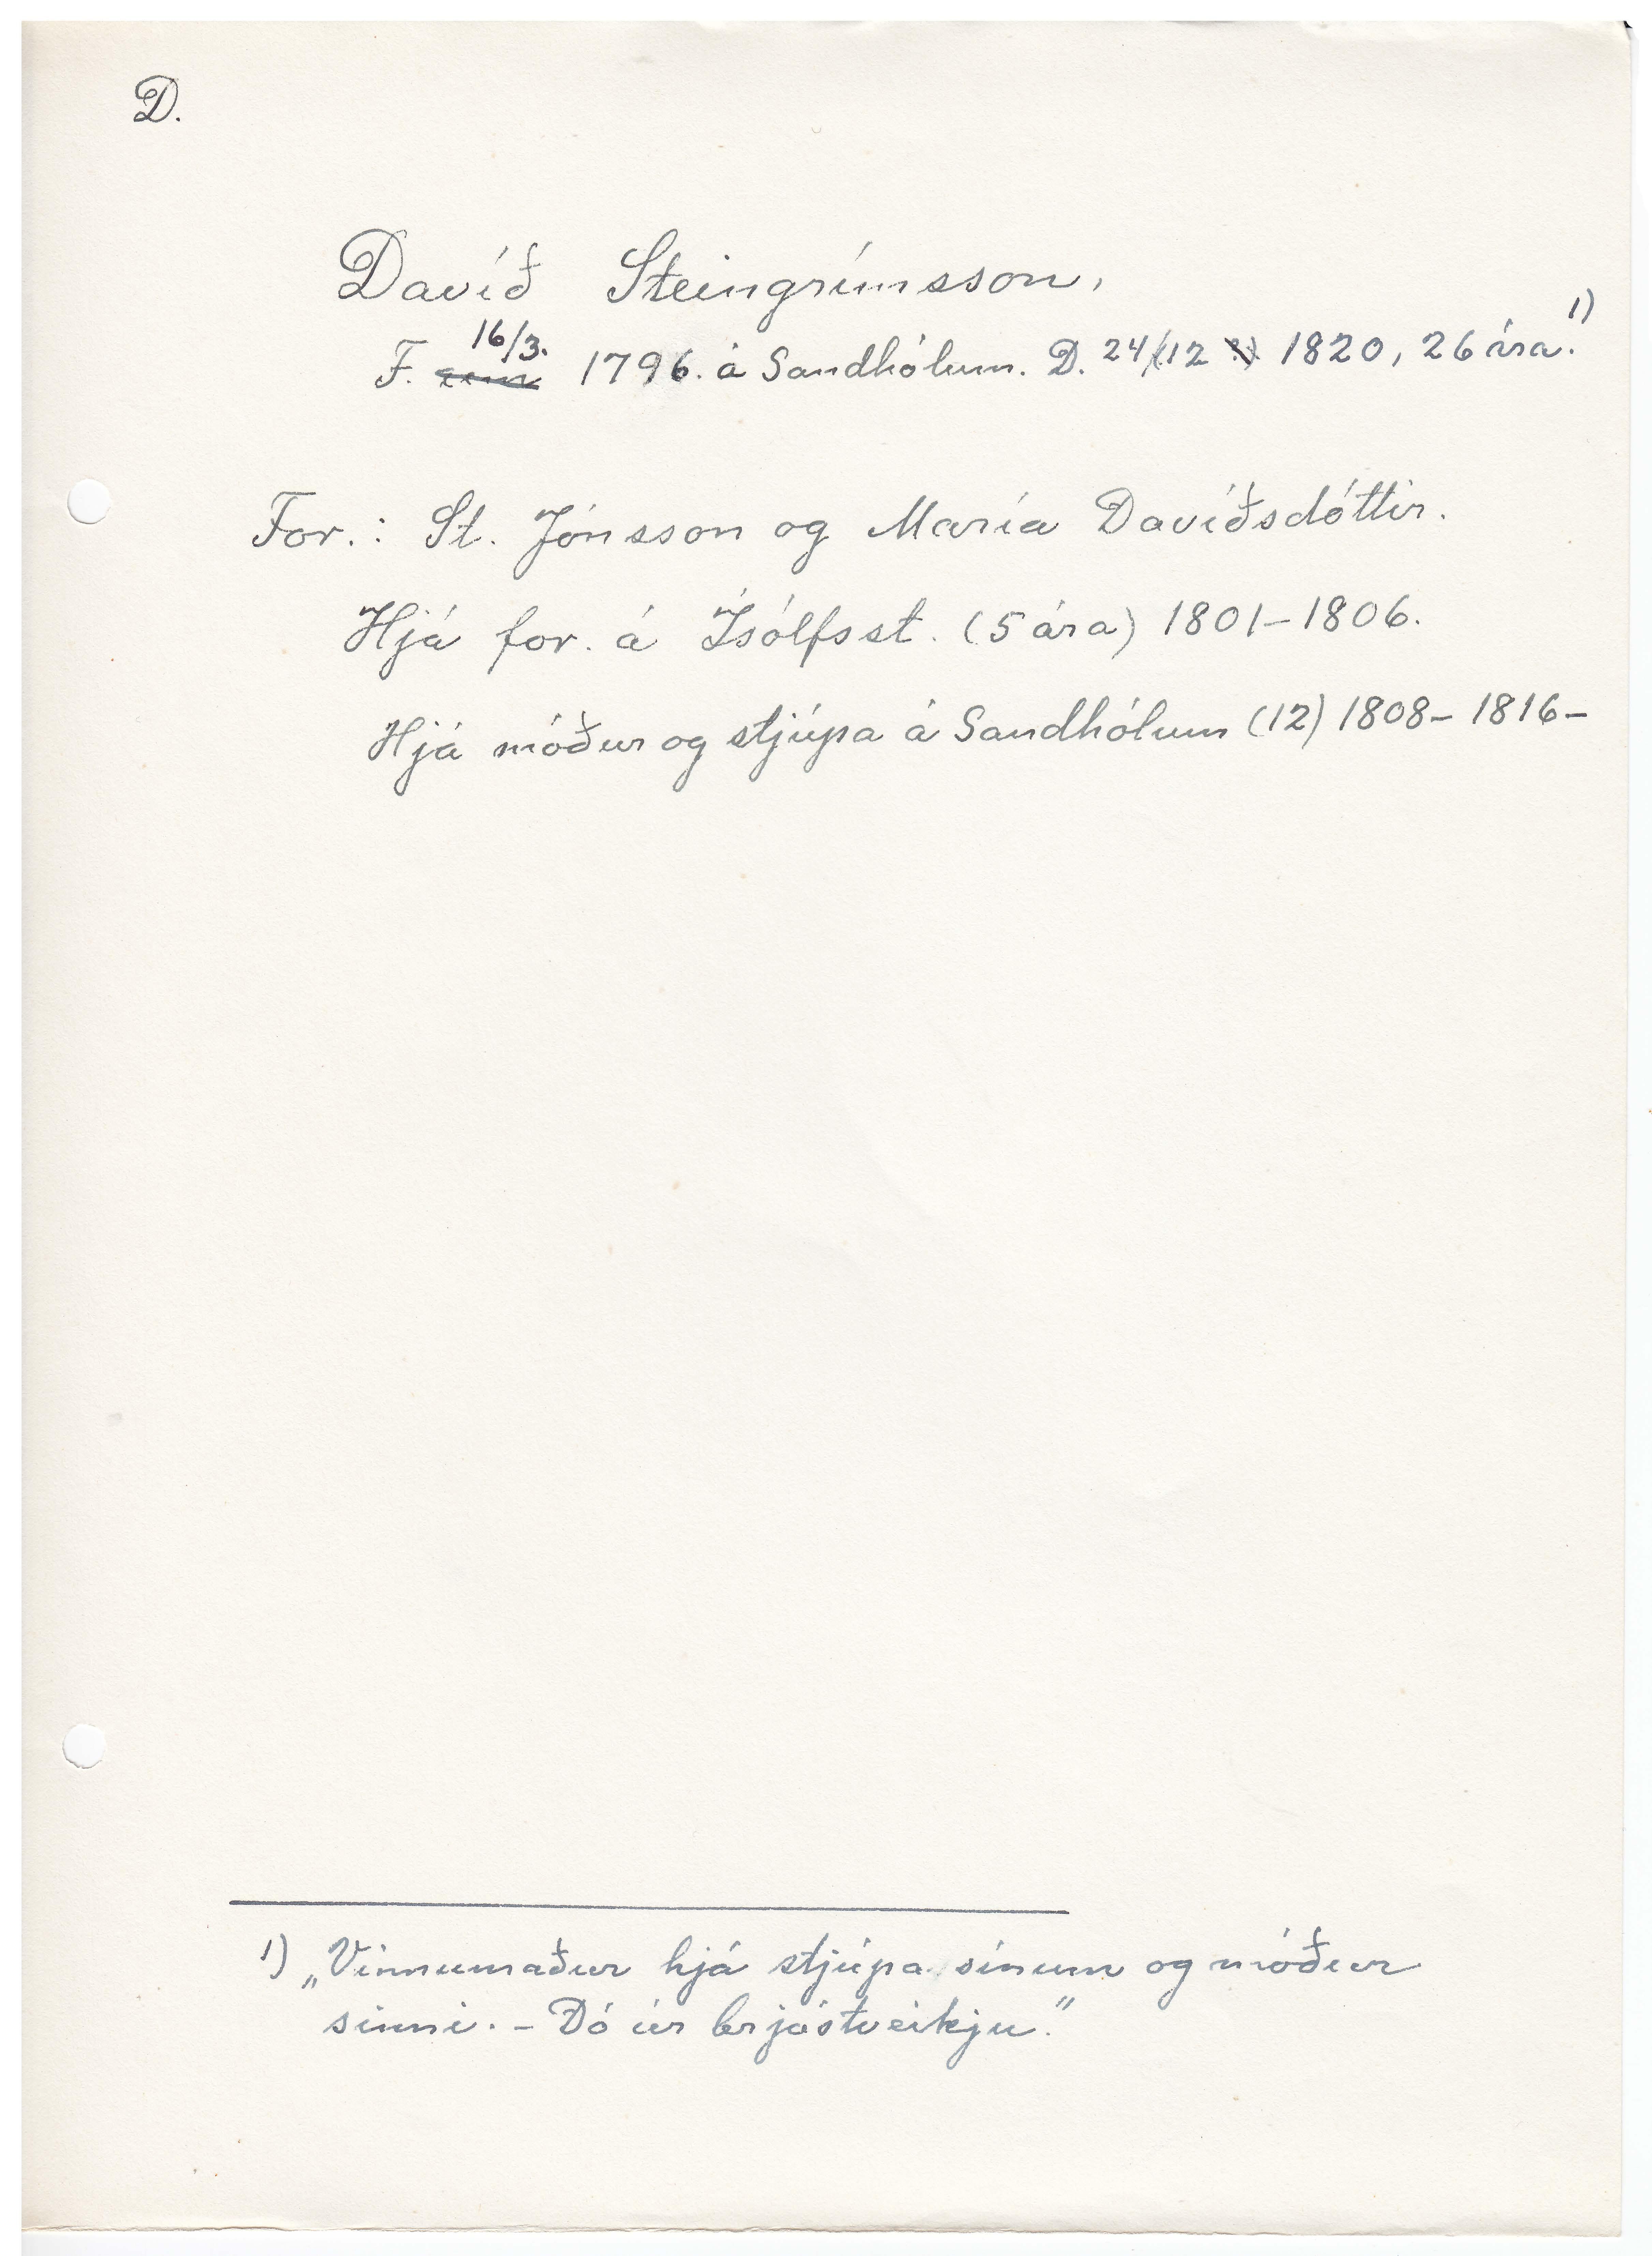 D.
Davíð Steingrímsson,
16/3.
F. 1796. á Sandhólum. D. 24/12 1820, 26 ára.1)
For.: St. Jónsson og María Davíðsdóttir.
Hjá for. á Ísólfsst. (5 ára) 1801-1806.
Hjá móður og stjúpa á Sandhólum (12) 1808- 1816-
1) „Vinnumaður hjá stjúpa sínum og móður
sinni. - Dó úr brjóstveikju."